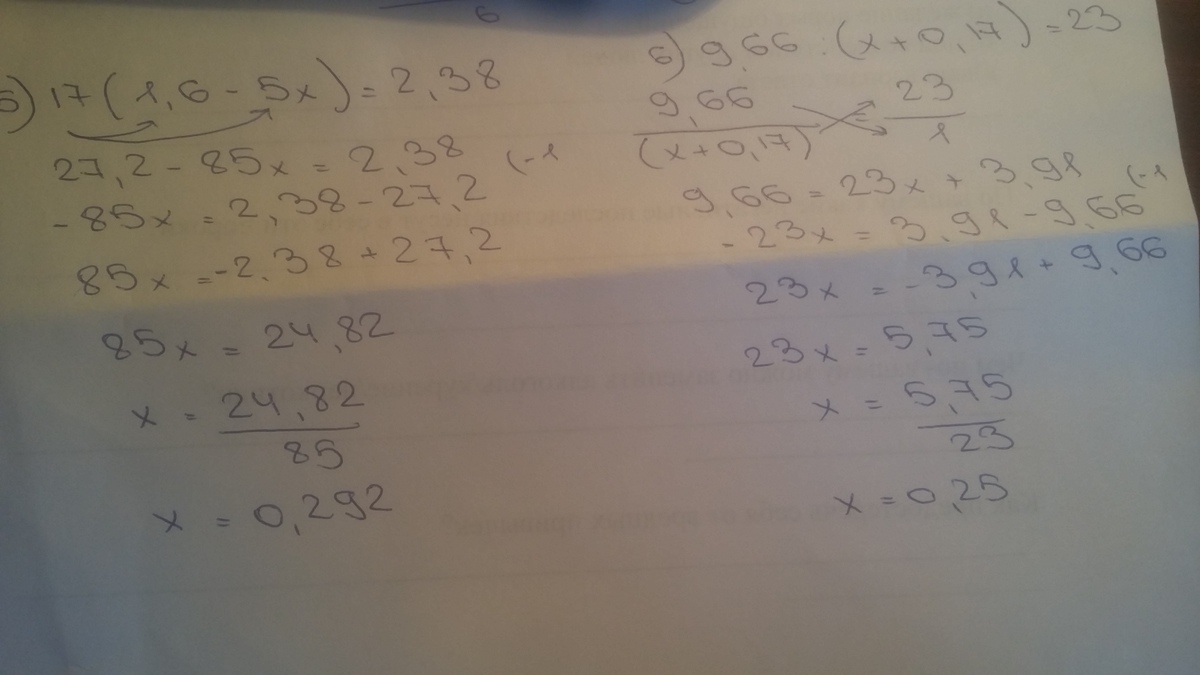 6
5) 17(1,6 - 5x) = 2,38
27,2 - 85x = 2,38 (-1
-85x = 2,38 - 27,2
85x = -2,38 + 27,2
85x = 24,82
x = 24,82
85
x = 0,292
6) 9,66 : (x + 0,17) = 23
9,66 = 23
(x + 0,17) 1
9,66 = 23x + 3,91
-23x = 3,91 - 9,66 (-1
23x = -3,91 + 9,66
23x = 5,75
x = 5,75
23
x = 0,25